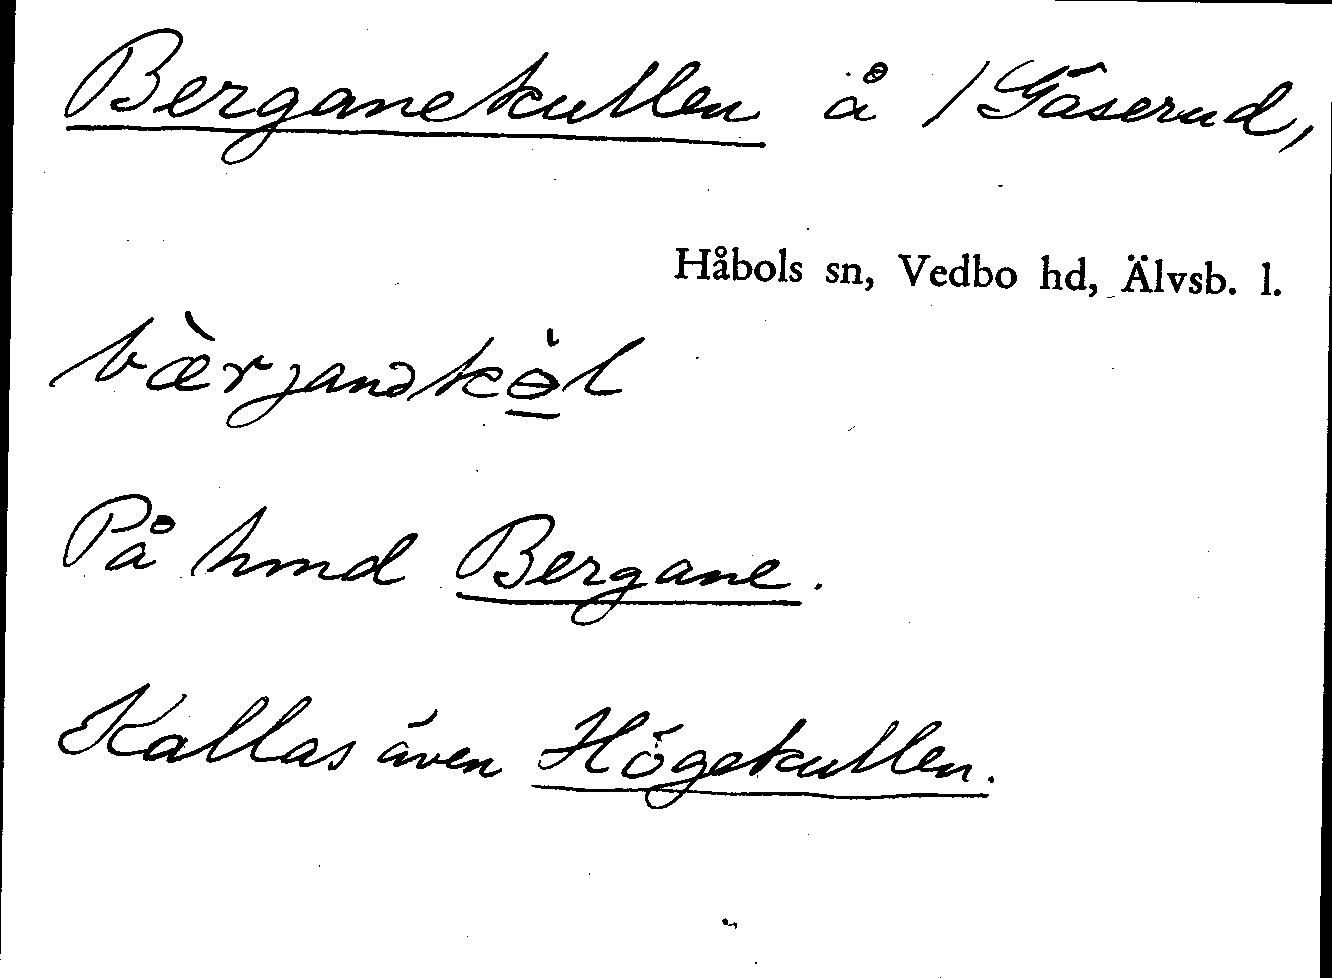 Berganekullen å /Gäserud,
Håbols sn, Vedbo hd, Älvsb. l.
bæ̀rjanəkɵ̠̀l
På hmd Bergane.
Kallas även Högekullen.